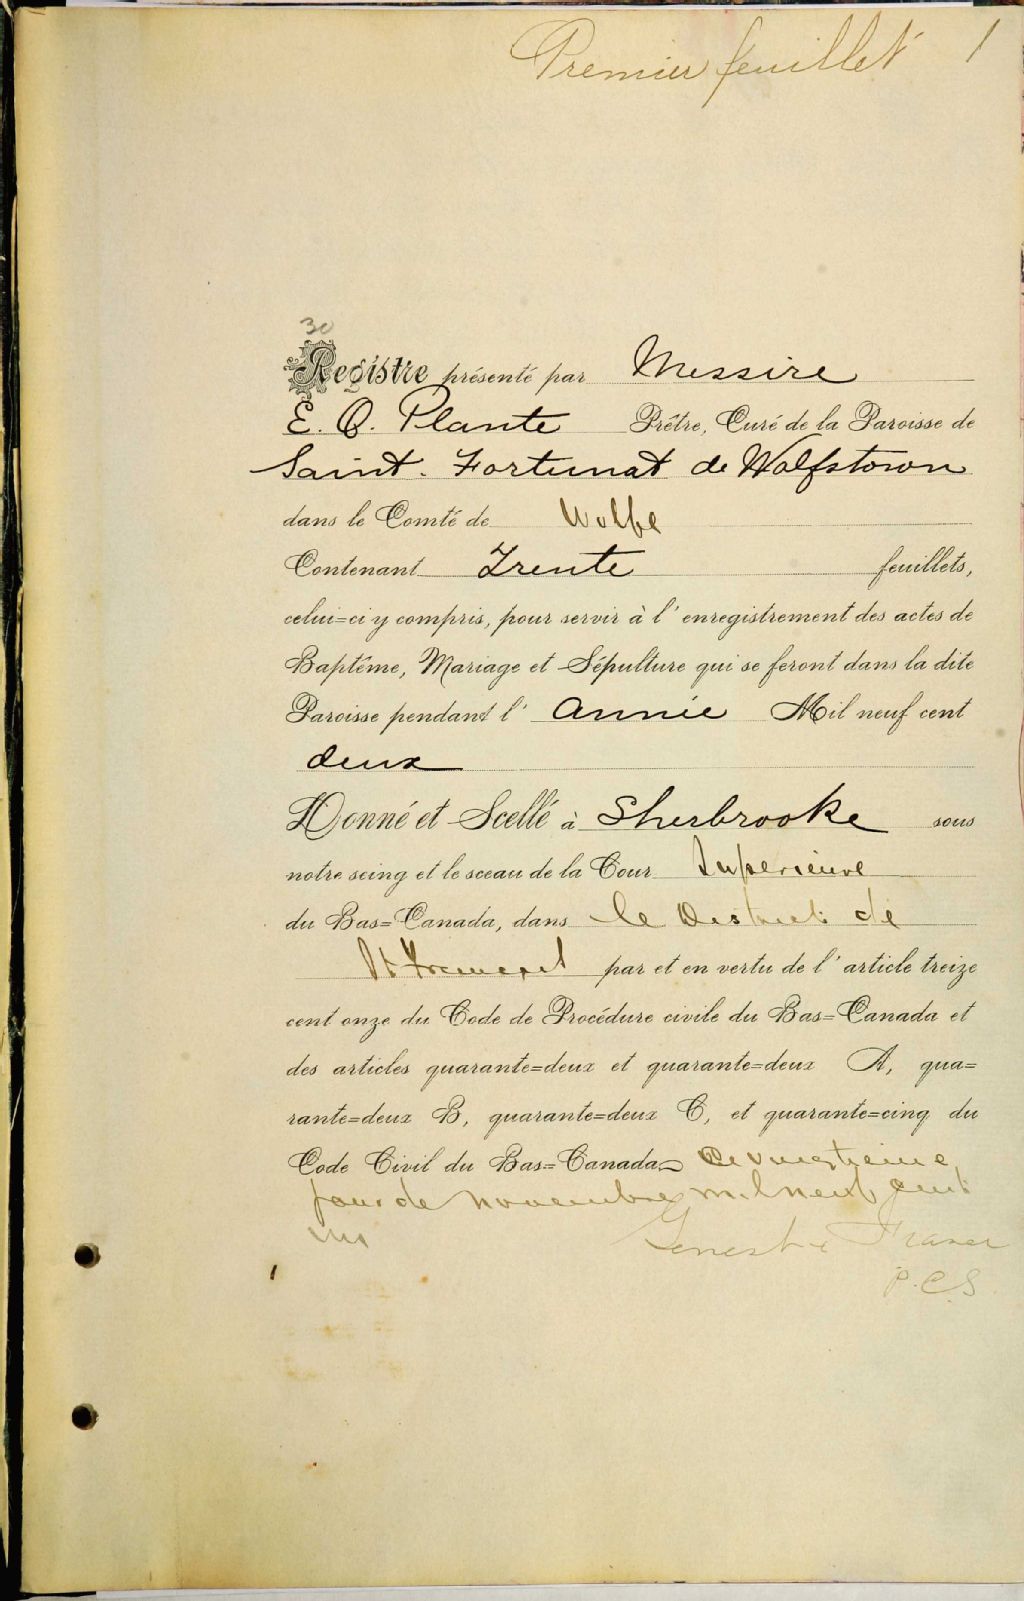 Premier feuillet 1
30
Registre présenté par Messire
E. Q. Plante Prêtre, Curé de la Paroisse de
Saint. Fortunat de Wolfstown
dans le Comté de Wolfe
Contenant Trente feuillets,
celui=ci y compris, pour servir à l'enregistrement des actes de
Baptême, Mariage et Sépulture qui se feront dans la dite
Paroisse pendant l'année Mil neuf cent
deux
Donné et Scellé à Sherbrooke sous
notre seing et le sceau de la Cour Superieure
du Bas=Canada, dans le District de
St Francois par et en vertu de l'article treize
cent onze du Code de Procédure civile du Bas=Canada et
des articles quarante=deux et quarante=deux A, qua=
rante=deux B, quarante=deux C, et quarante=cinq du
Code Civil du Bas=Canada
jour de novembre mil neuf cent
un Genest & Fraser
P.C.S